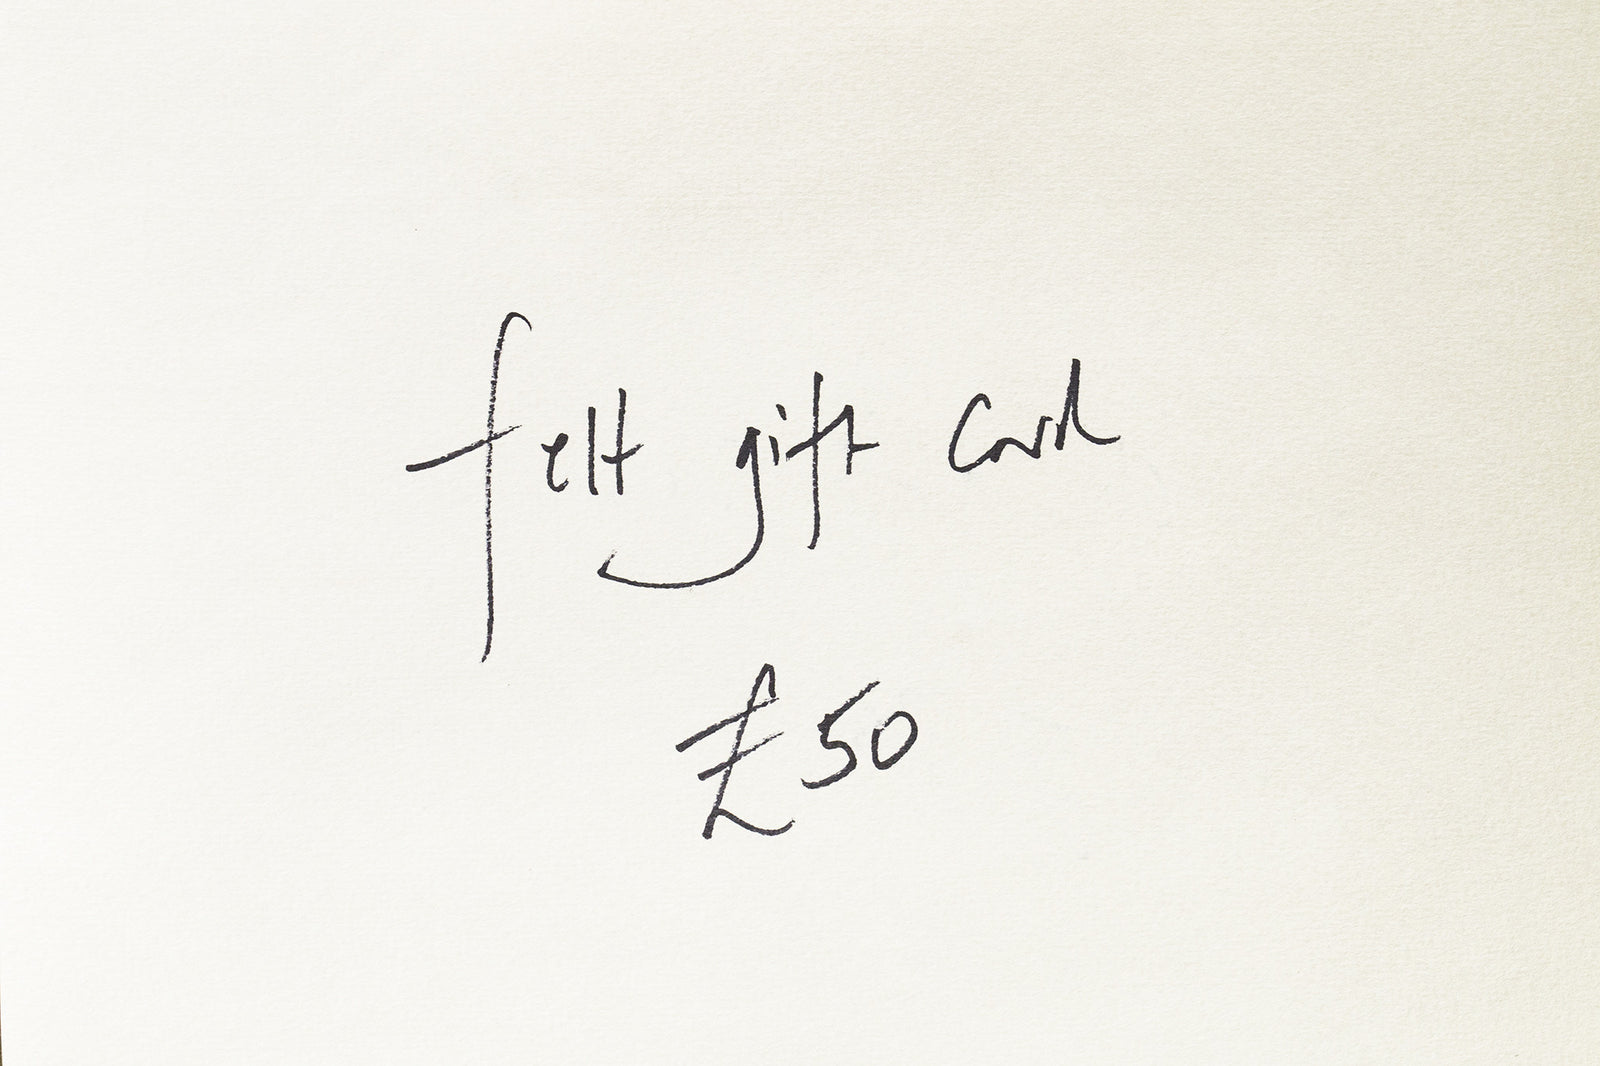 felt gift card
£50